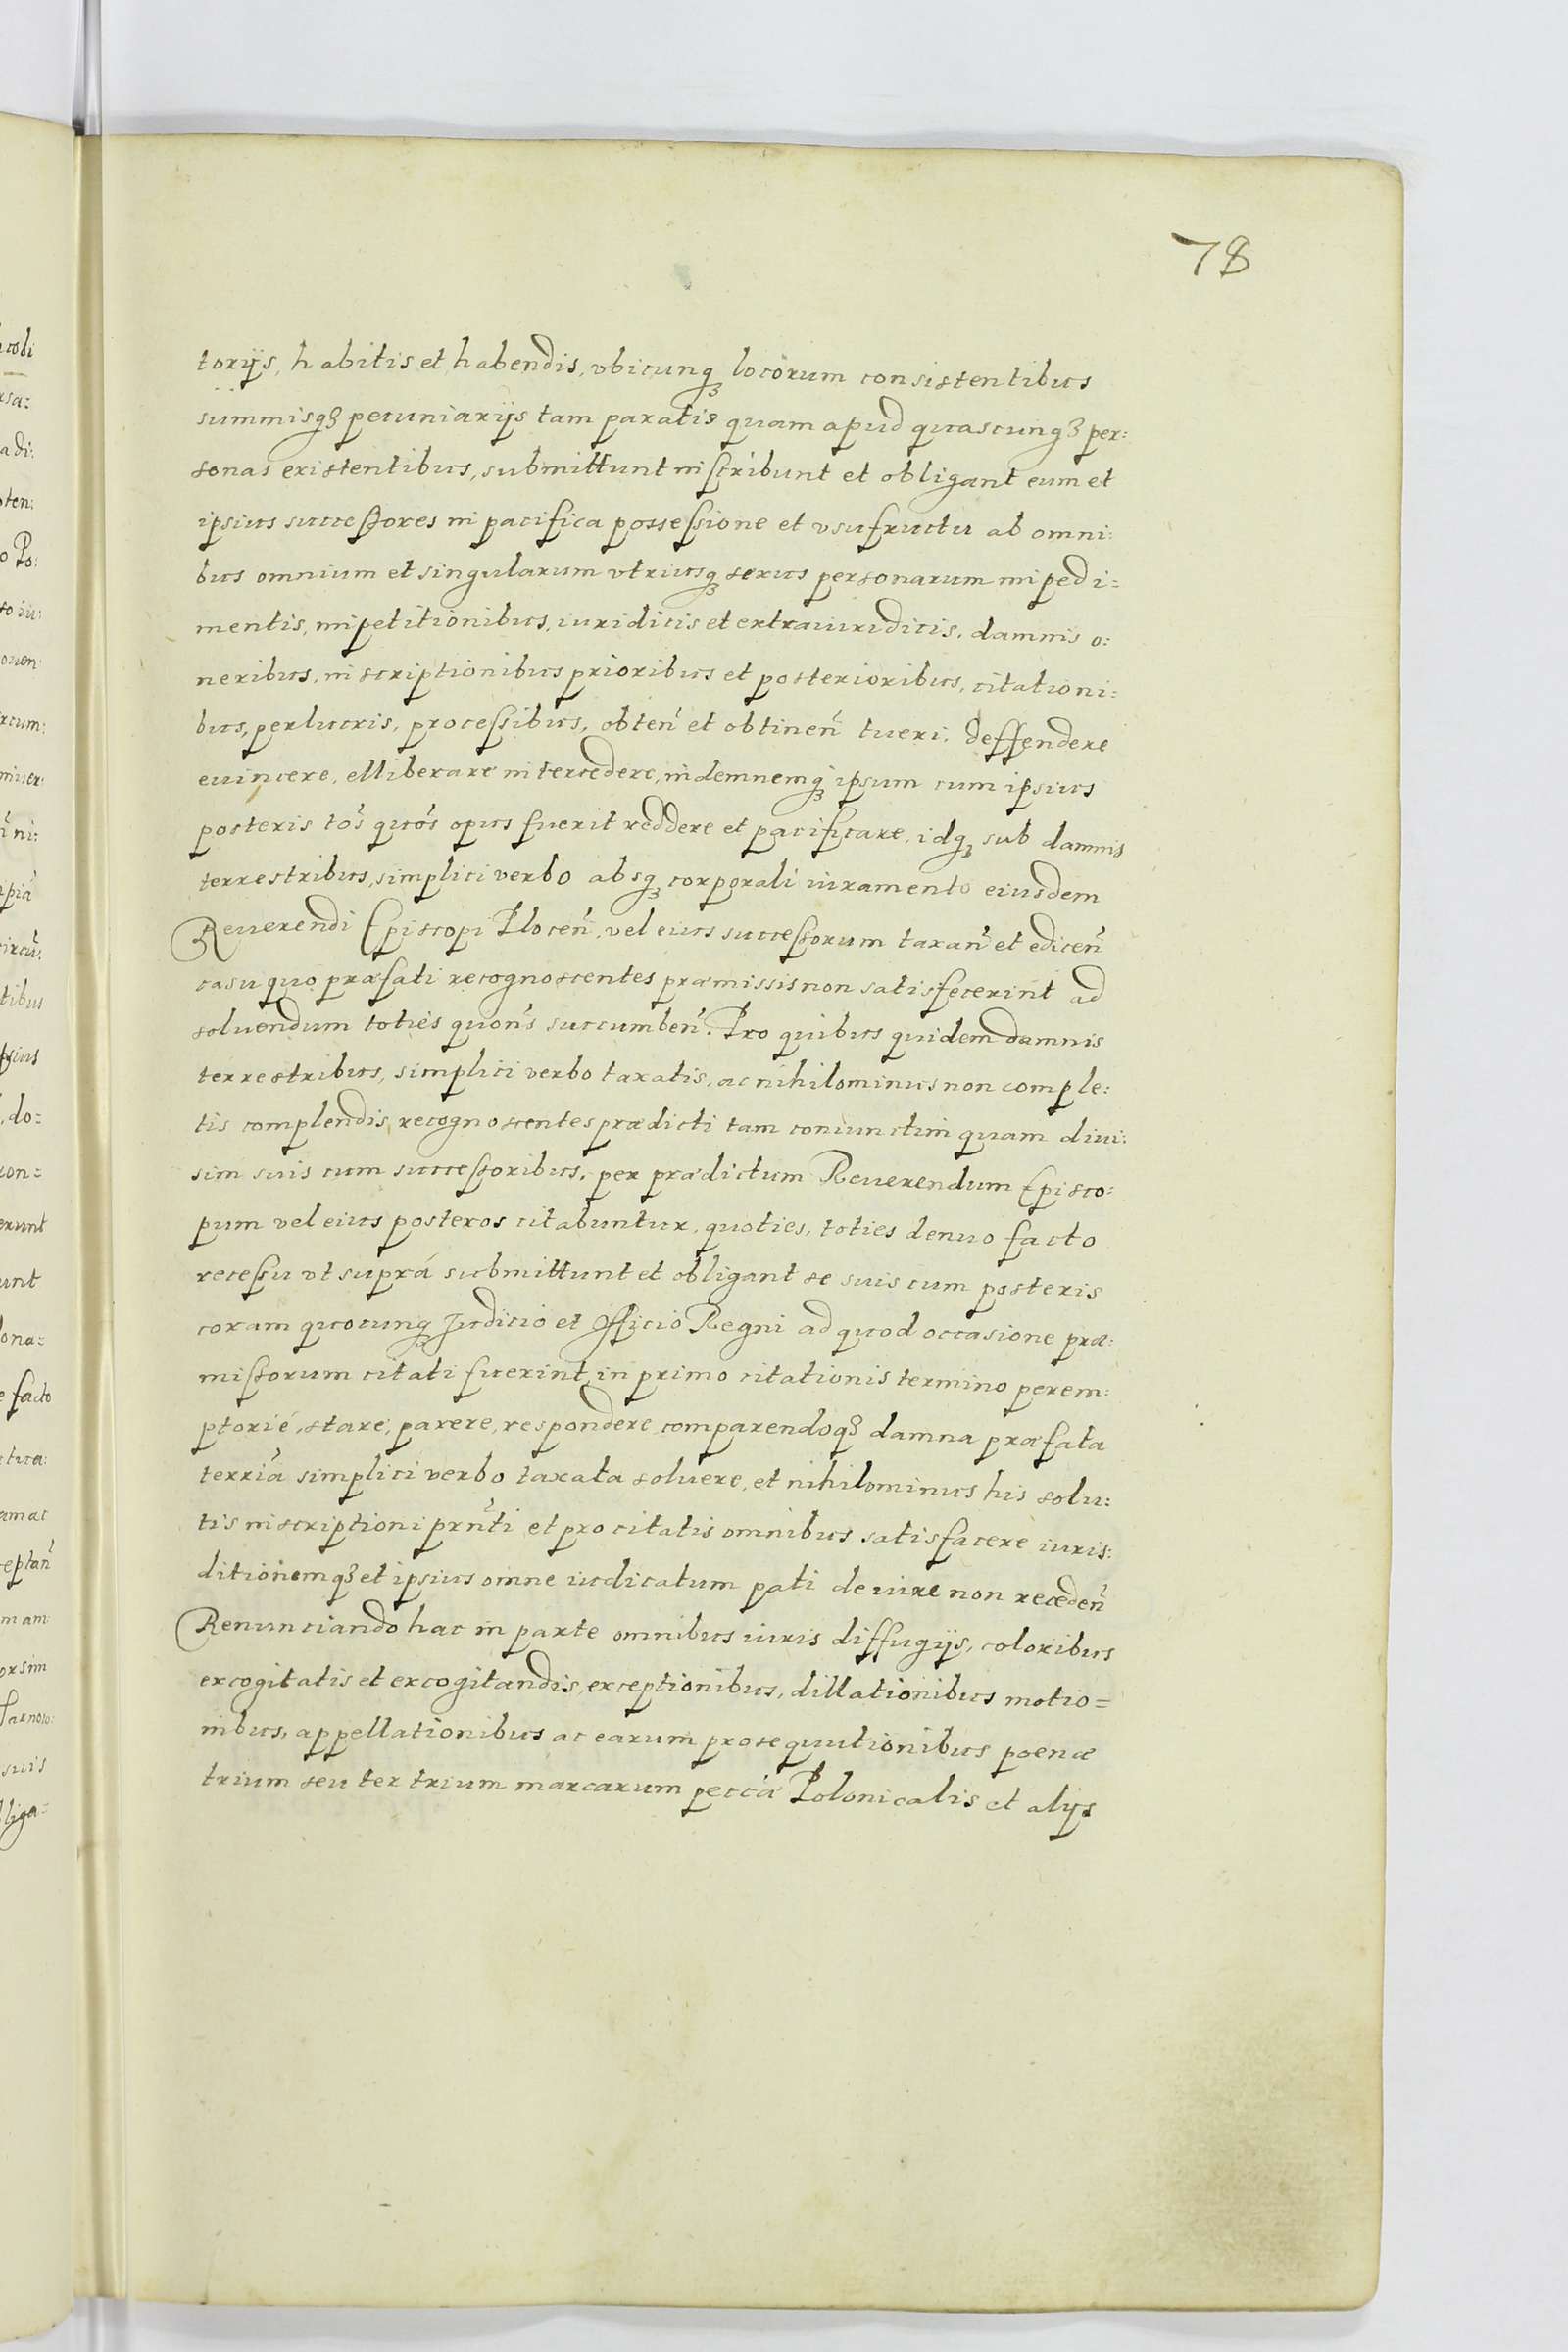 78
torijs, habitis et habendis, vbicunqꝫ locorum consistentibus
summisqꝫ pecuniarijs tam paratis quam apud quascunqꝫ per:
sonas existentibus, submittunt inscribunt et obligant eum et
ipsius successores in pacifica possessione et vsufructu ab omni:
bus omnium et singularum vtriusqꝫ sexus personarum impedi=
mentis, impetitionibus, iuridicis et extraiuridicis, damnis o:
neribus, inscriptionibus prioribus et posterioribus, citationi:
bus, perlucris, processibus, obten̄ et obtinen̄ tueri, deffendere
euincere, elliberare intercedere, indemnemqꝫ ipsum cum ipsius
posteris tós quós opus fuerit reddere et pacificare, idqꝫ sub damnis
terrestribus, simplici verbo absqꝫ corporali iuramento eiusdem
Reuerendi Episcopi Plocen̄, vel eius successorum taxan̄ et edicen̄
casu quo præfati recognoscentes præmissis non satisfecerint ad
soluendum toties quon̄s succumben̄. Pro quibus quidem damnis
terrestribus, simplici verbo taxatis, ac nihilominus non comple:
tis complendis, recognoscentes prædicti tam coniunctim quam diui:
sim suis cum successoribus, per prædictum Reuerendum Episco:
pum vel eius posteros citabuntur, quoties, toties denuo facto
recessu vt suprá submittunt et obligant se suis cum posteris
coram quocunqꝫ Judicio et Officio Regni ad quod occasione præ:
missorum citati fuerint, in primo citationis termino perem:
ptorié, stare, parere, respondere, comparendoqꝫ damna præfata
terria̅ simplici verbo taxata soluere, et nihilominus his solu:
tis inscriptioni prn̄ti et pro citatis omnibus satisfacere iuris:
ditionemqꝫ et ipsius omne iudicatum pati de iure non receden̄
Renunciando hac in parte omnibus iuris diffugijs, coloribus
excogitatis et excogitandis, exceptionibus, dillationibus motio=
nibus, appellationibus ac earum prosequutionibus poenæ
trium seu ter trium marcarum peccá Polonicalis et alijs